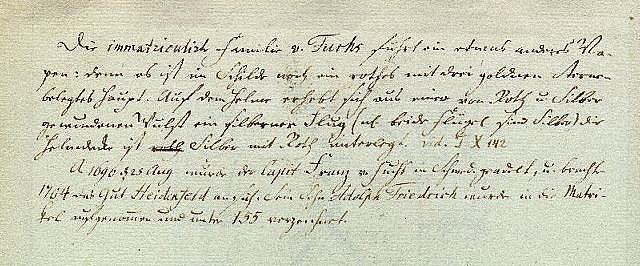 Die immatriculirte Familie v. Fuchs führt ein etwas anderes Wa-
pen: denn es ist im Schilde noch ein rothes mit drei goldnen Sternen
belegtes Haupt. Auf dem Helme erhebt sich aus einer von Roth u. Silber
gewundenen Wulst ein silberner Flug (sc. beide Flügel sind Silber) die
Helmdecke ist Silber mit Roth unterlegt. vid. X 142
A 1690 d 25 Aug wurde der Franz v. Fuchs in Schwed. geadelt, u. brachte
1704 das Gut Heidenfeld an sich. Sein Sohn Adolph Friedrich wurde in die Matri-
kel aufgenommen und unter 155 verzeichnet.